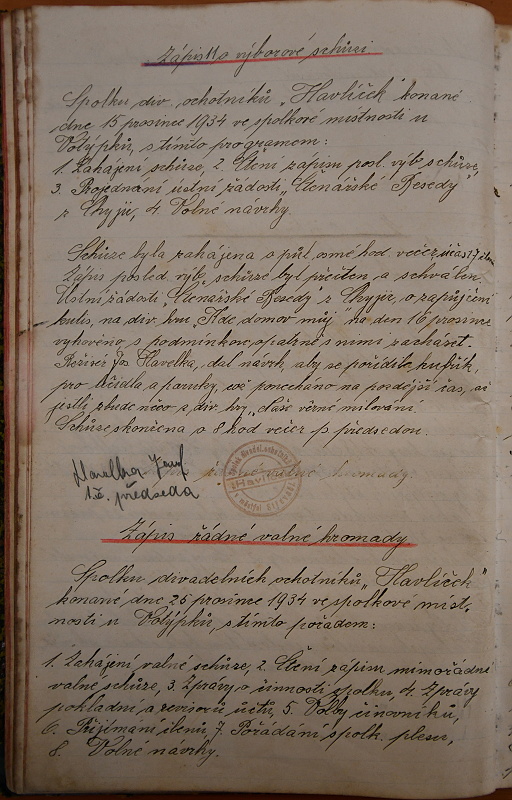 Zápis o výborové schůzi
Spolku div. ochotníků „Havlíček" konané
dne 15 prosince 1934 ve spolkové místnosti u
Votýpků, s tímto programem:
1. Zahájení schůze, 2. Čtení zápisu posl. výb. schůze,
3. Projednání ústní žádosti „Čtenářské Besedy"
z Chyjic, 4. Volné návrhy.
Schůze byla zahájena o půl osmé hod. večer, účast 7 člen.
Zápis posled. výb. schůze byl přečten a schválen.
Ústní žádosti „Čtenářské Besedy" z Chyjic, o zapůjčení
kulis, na div. hru „Kde domov můj" na den 16 prosince
vyhověno s podmínkou, opatrně s nimi zacházet.
Režisér Jos Havelka, dal návrh, aby se pořídil kufřík,
pro líčidla a paruky, což ponecháno na pozdější čas, až
jestli zbude něco z div. hry „Naše věrné milování.
Schůze skončena o 8 hod večer p. předsedou.
Havelka Josef
t.č. předseda
valné hromady
Havlíček
Zápis řádné valné hromady
Spolku divadelních ochotníků „Havlíček"
konané dne 25 prosince 1934 ve spolkové míst-
nosti u Votýpků, s tímto pořadem:
1. Zahájení valné schůze, 2. Čtení zápisu mimořádné
valné schůze, 3. Zprávy o činnosti spolku, 4. Zprávy
pokladní a revisorů účtů, 5. Volby činovníků,
6. Přijímání členů, 7. Pořádání spolk. plesu,
8. Volné návrhy.